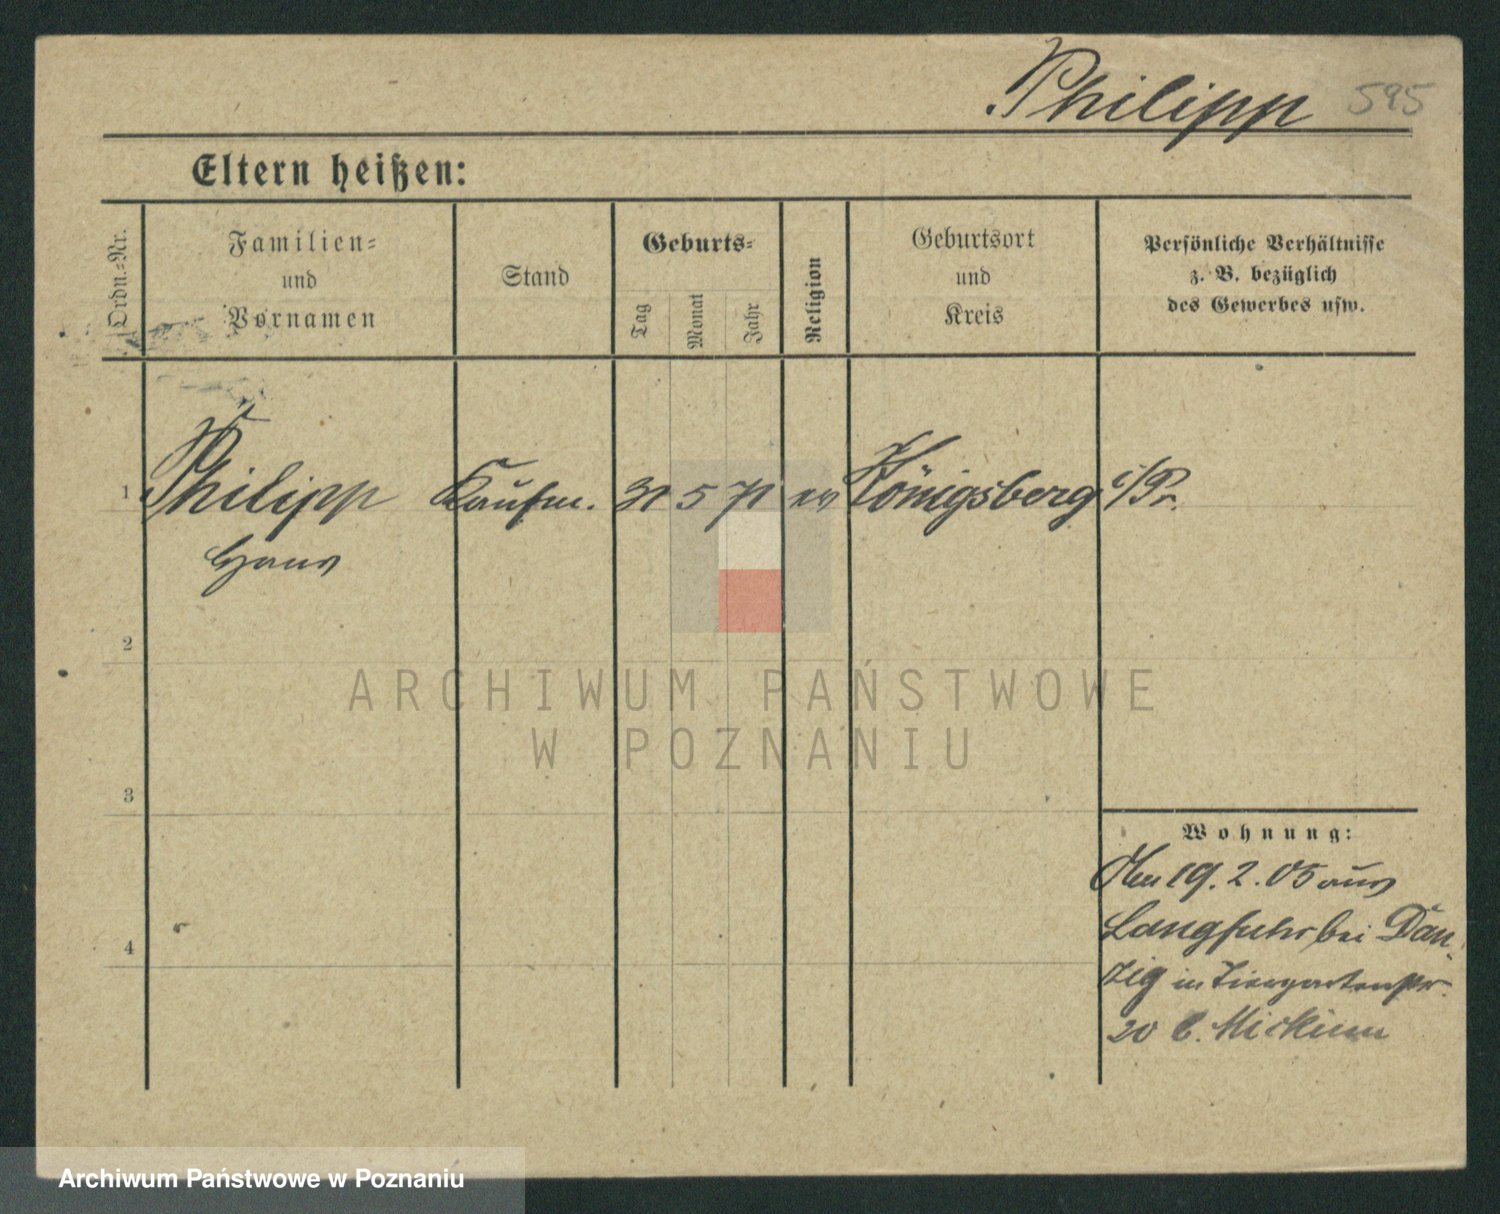 Philipp 595
Eltern heißen:
Ordn.=Nr.
Familien=
und
Vornamen
Stand
Geburts=
Tag
Monat
Jahr
Religion
Geburtsort
und
Kreis
Persönliche Verhältnisse
z. B. bezüglich
des Gewerbes usw.
1 Philipp Kaufm. 31 5 71 ev Königsberg i/Pr.
Hans
2
3
4
Wohnung:
19. 2. 05 aus
Langfuhr bei Dan
zig in Tiergartenstr.
20 b.
ARCHIWUM PAŃSTWOWE
W POZNANIU
Archiwum Państwowe w Poznaniu